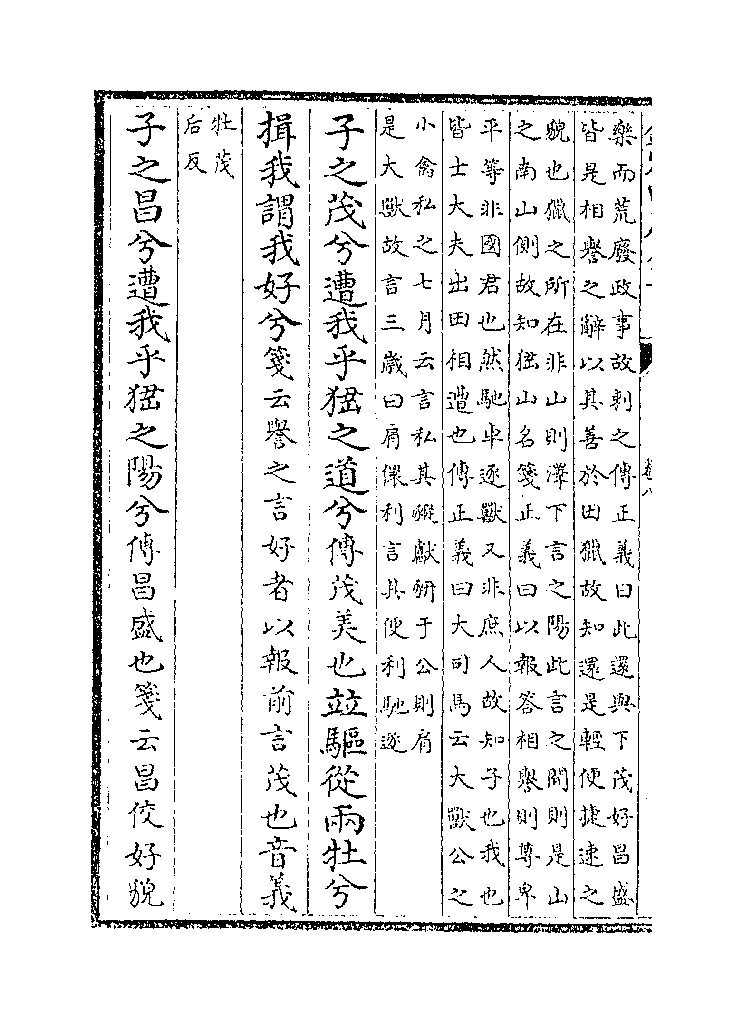 樂而荒廢政事故刺之傳正義曰此還與下茂好昌盛
皆是相譽之辭以其善於田獵故知還是輕便捷速之
貌也獵之所在非山則澤下言之陽此言之間則是山
之南山側故知猺山名箋正義曰以報答相譽則尊卑
平等非國君也然馳車逐獸又非庶人故知子也我也
皆士大夫出田相遭也傳正義曰大司馬云大獸公之
小禽私之七月云言私其豵獻豜于公則肩
是大獸故言三歲曰肩儇利言其便利馳逐
子之茂兮遭我乎猺之道兮傳茂美也竝驅從兩牡兮
揖我謂我好兮箋云譽之言好者以報前言茂也音義
牡茂
后反
子之昌兮遭我乎猺之陽兮傳昌盛也箋云昌佼好貌